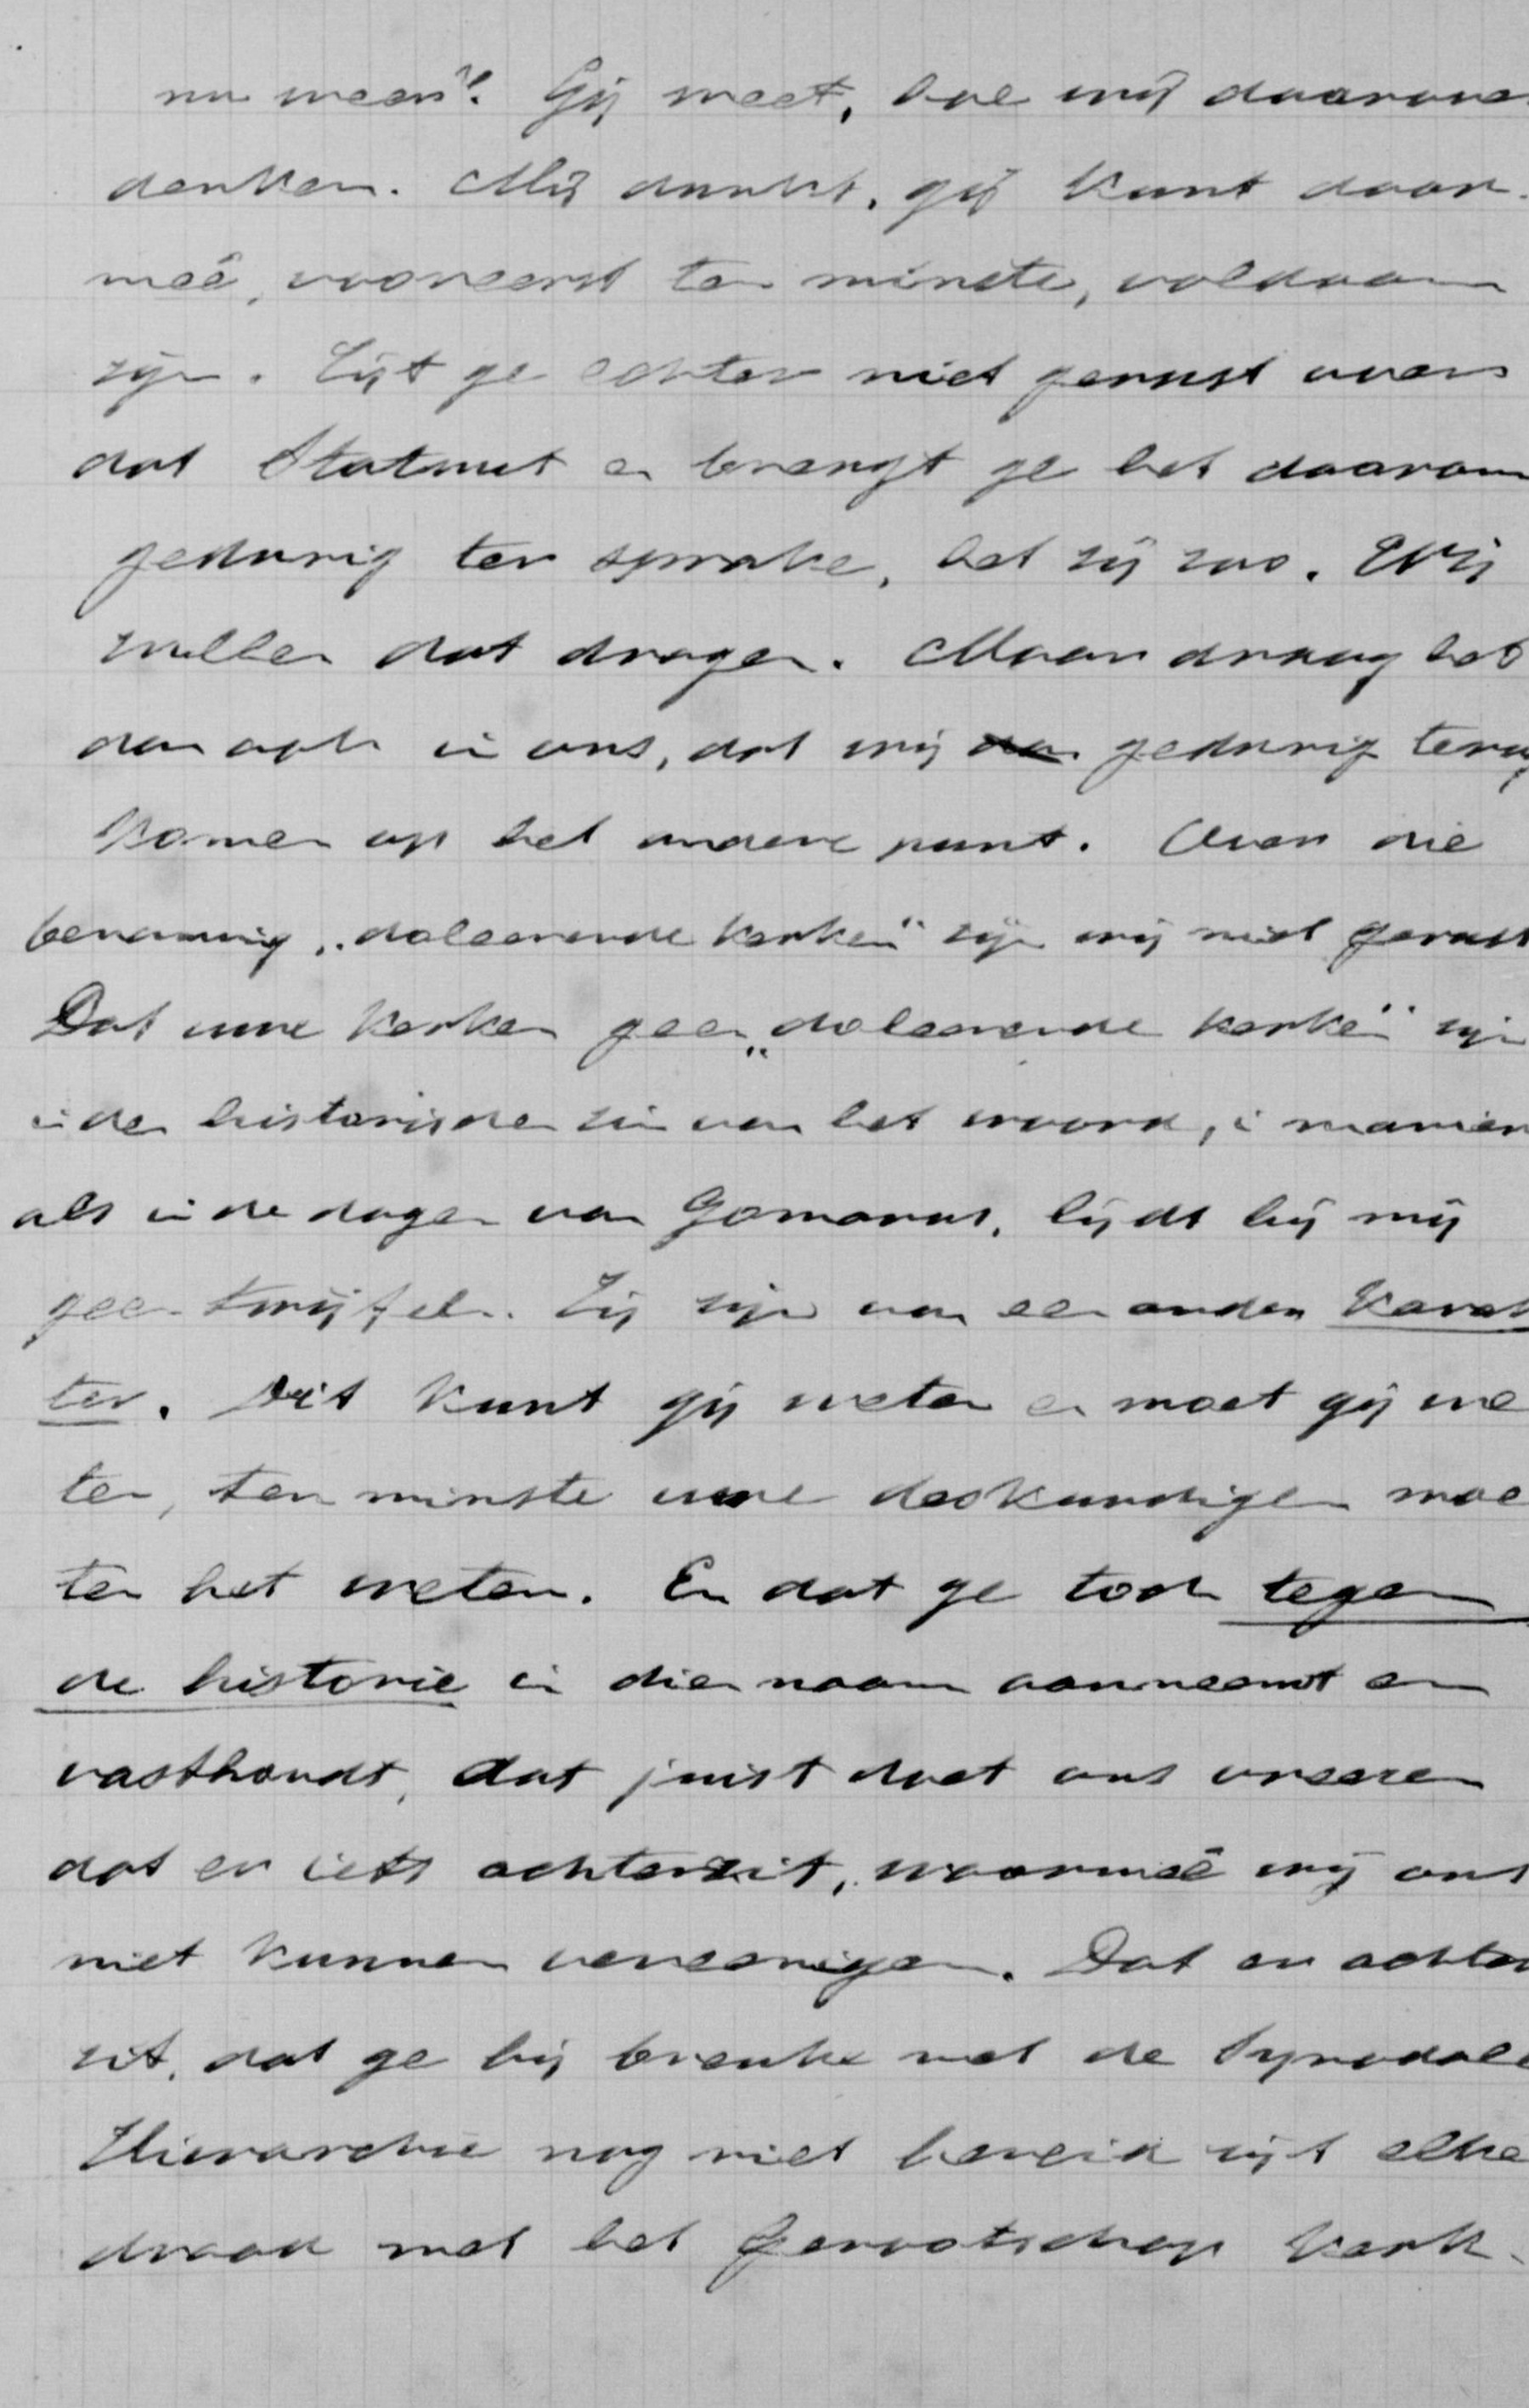 nu weer? Gij weet, hoe wij daarove
denken. Mij dunkt, gij kunt daar-
meê, vooreerst ten minste, voldaan
zijn. Zijt ge echter niet gerust over
dat Statuut en brengt ge het daarom
gedurig ter sprake, het zij zoo. Wij
zullen dat dragen. Maar draag het
dan ook in ons, dat wij gedurig terug
komen op het andere punt. Over die
benaming „doleerende kerken" zijn wij niet gerust
Dat uwe kerken geen „doleerende kerken" zijn
in den historischen zin van het woord, in manier
als in de dagen van Gomarus, lijdt bij mij
geen twijfel. Zij zijn van een ander karak
ter. Dit kunt gij weten en moet gij we
ten, ten minste uwe deskundigen moe
ten het weten. En dat ge toch tegen
de historie in dien naam aanneemt en
vasthoudt, dat juist doet ons vreezen
dat er iets achterzit, waarmeê wij ons
niet kunnen vereenigen. Dat er achter
zit, dat ge bij breuke met de Synodale
Hierarchie nog niet bereid zijt elke
draad met het Genootschap Kerk-